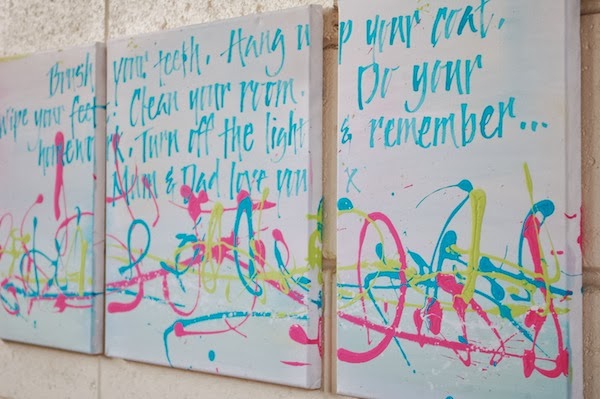 Brush your teeth. Hang up your coat.
Wipe your feet. Clean your room. Do your
homework. Turn off the light & remember...
Mum & Dad love you x